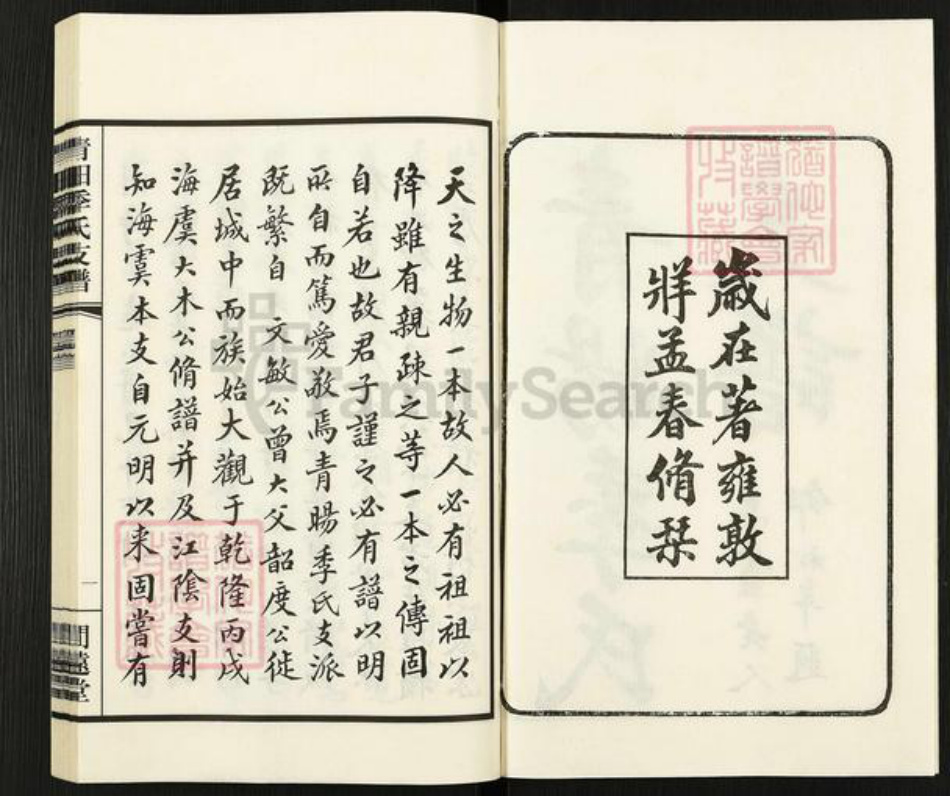 歲在著雍敦
牂孟春脩琹
天之生物一本故人必有祖祖以
降雖有親疎之等一本之傳固
自若也故君子謹之必有譜以明
所自而篤愛敬焉青暘季氏支派
既繁自 文敏公曾大父韶度公徙
居城中而族始大觀于乾隆丙戌
海虞大木公脩譜并及江陰支則
知海虞本支自元明以来固嘗有
季氏支譜
一
FamilySearch